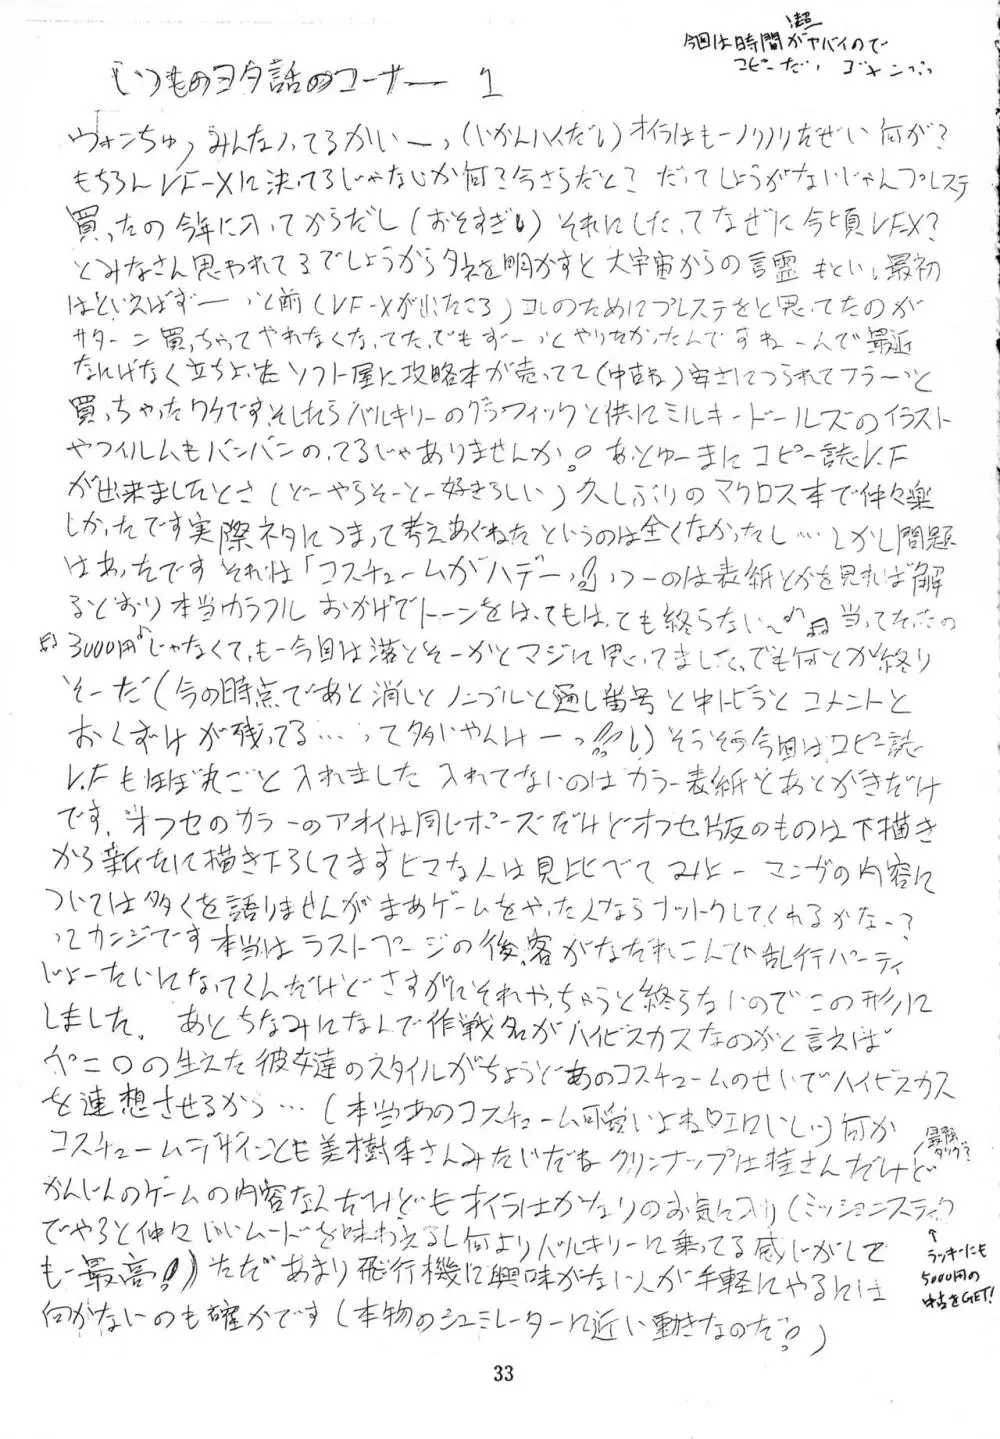 超
今回は時間がヤバイので
コピーだい ゴメンっっ
いつものヨタ話のコーナー 1
ウォンちゅっみんなノッてるかいーっ(いかんハイだし)オイラはもーノリノリだぜい何が?
もちろんVF-Xに決ってるじゃないか何?今さらだと? だってしょうがないじゃんプレステ
買ったの今年に入ってからだし(おそすぎい)それにしたってなぜに今頃VFX?
とみなさん思われてるでしょうからタネを明かすと大宇宙からの言霊 もとい、最初
はといえばずーーっと前(VF-Xが出たころ)コレのためにプレステをと思ってたのが
サターン買っちゃってやれなくなってた、でもずーっとやりたかったんですねーんで最近
なにげなく立ちよった ソフト屋に攻略本が売ってて(中古ね)安さにつられてフラーっと
買っちゃったワケです、そしたらバルキリーのグラフィックと供にミルキードールズのイラスト
やフィルムもバンバンのってるじゃありませんか!! あっとゆーまに コピー誌V.F
が出来ましたとさ(どーやらそーとー好きらしい)久しぶりのマクロス本で仲々楽
しかったです実際ネタにつまって考えあぐねたというのは全くなかったし…しかし問題
はあったです それは「コスチュームがハデーっ!!」っつーのは表紙とかを見れば解
るどおり本当カラフル おかげでトーンをはってもはっても終らない〜♪♬ 当ってくだの
♬3000円♪じゃなくて、もー今回は落とそーかとマジに思ってました、でも何とか終り
そーだ(今の時点であと消しとノンブルと通し番号と中トビラとコメントと
おくずけが残ってる…って多いやんけーっ!!い)そうそう今回はコピー誌
V.Fもほぼ丸ごと入れました入れてないのはカラー表紙とあとがきだけ
です、オフセのカラーのアオイは同じポーズだけどオフセ版のものは下描き
から新たに描き下ろしてますヒマな人は見比べてみよー マンガの内容に
ついては多くを語りませんがまあゲームをやった人ならナットクしてくれるかなー?
ってカンジです本当はラストページの後、客がなだれこんで乱行パーティ
じょーたいになってくんだけどさすがにそれやっちゃうと終らないのでこの形に
しました、 あとちなみになんで作戦名がハイビスカスなのかと言えば
の生えた彼女達のスタイルがちょうどあのコスチュームのせいでハイビスカス
を連想させるから…(本当あのコスチューム可愛いよね♡エロいしっ)何か
コスチュームデザインとも美樹本さんみたいだねクリンナップは桂さんだけど
かんじんのゲームの内容なんだけどもオイラはかなりのお気に入り(ミッションスティック
でやると仲々いいムードを味わえるし何よりバルキリーに乗ってる感じがして
もー最高!!)ただあまり飛行機に興味がない人が手軽にやるには
向かないのも確かです(本物のシュミレーターに近い動きなのだ!!)
最強タッグ?
↑
ラッキーにも
5000円の
中古をGET!
33